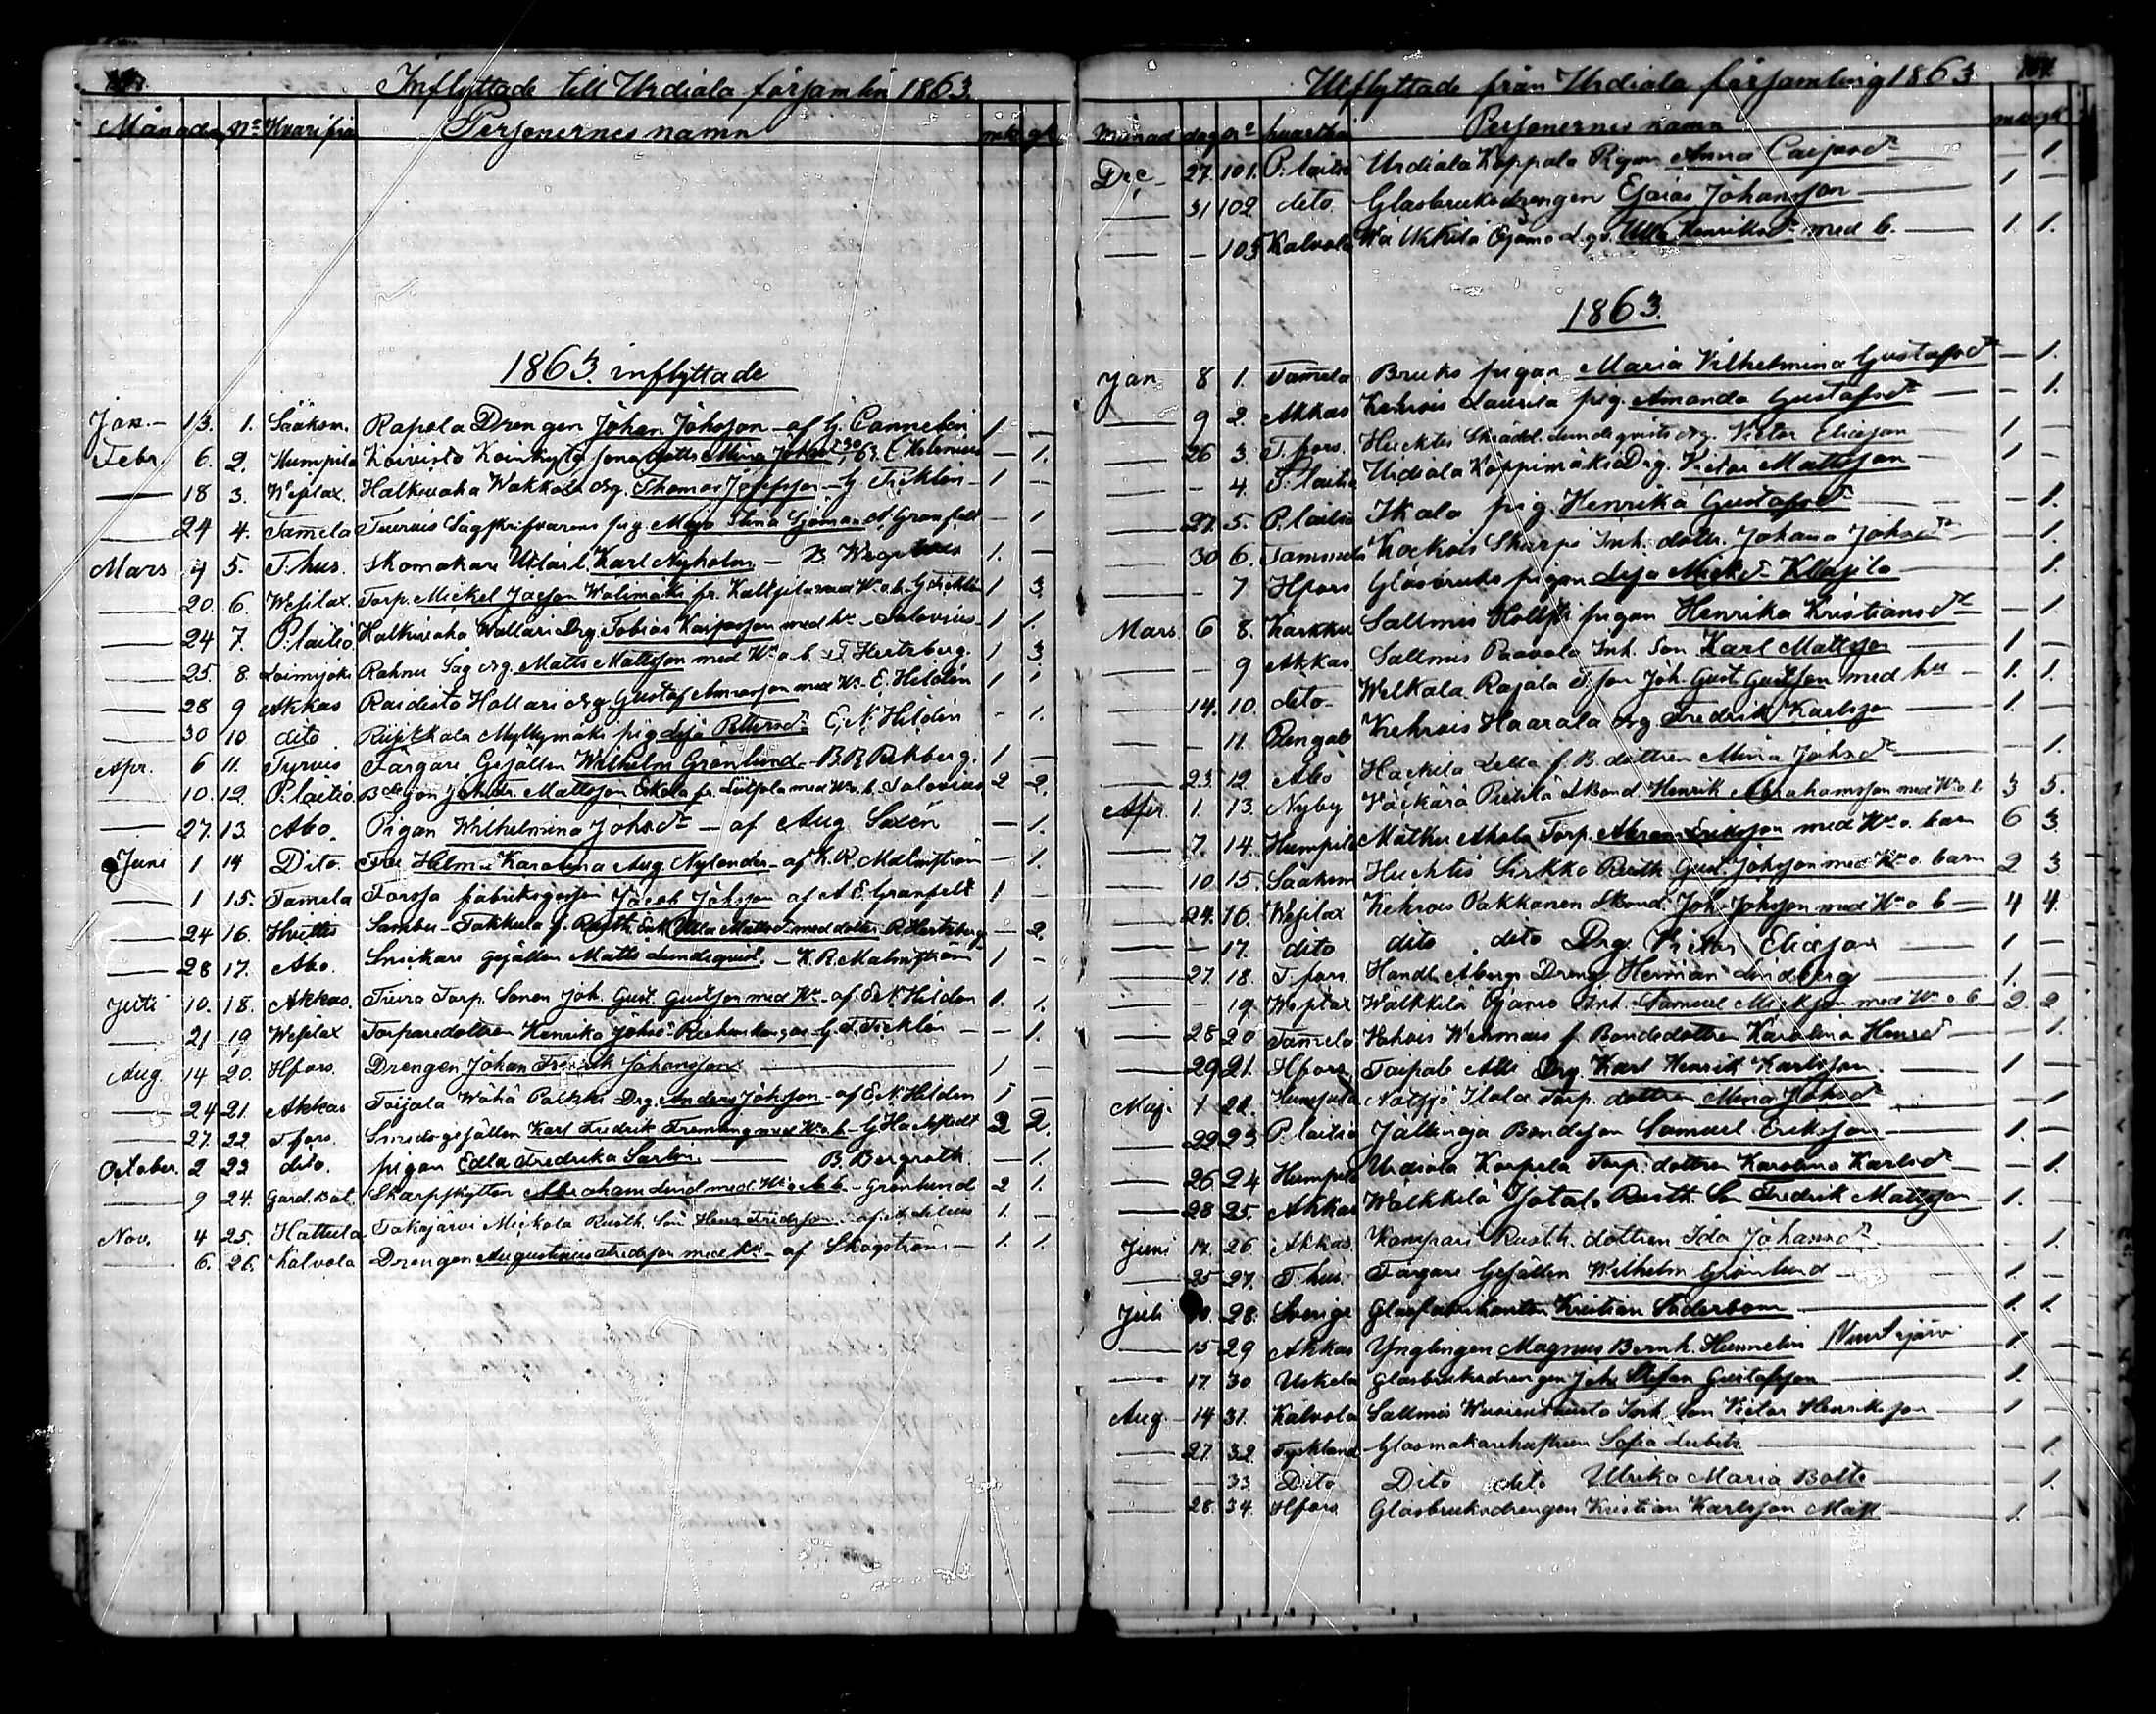 Inflyttade till Urdiala församlin 1863.
Månad dag No Hvarifrån Personernes namn mk. qk.
1863. inflyttade
Jan. — 13. 1. Sääksm. Rapola Drengen Johan Johsson — af G. Cannelin 1 —
Febr. 6. 2. Humpila Koivisto Koinkylä Jonas dotts Mina Johsd E. Helenius — 1.
— 18 3. Wesilax. Halkivaha Wakkala drg. Thomas Josefsson — G Ticklén — 1 —
— 24 4. Tam̄ela Tuervis Sågskrifvarens pig. Maja Stina Sjöman A. Granfelt — 1
Mars 4 5. T.hus. Skomakare Utlärl. Karl Nyholm — B. 1. —
— 20. 6. Wesilax. Torp. Mickel Jacsson Wälimäki fr. med Wo. o. b. G. Ticklén 1 3.
— 24 7. P.laitio. Halkivaha Wallari Drg. Tobias Kaisasson med hu — Salovius — 1 1.
— 25. 8. Loimijoki Rahnu Såg drg. Matts Mattsson med Wo. o. b. F. Hertzberg. 1 3.
— 28 9 Akkas Raidisto Hollari drg. Gustaf med Wo. E. Hildén 1 1
— 30 10 dito Riijkkala Myllymäki pig Lisa Pettersd. E. N. Hildén — 1.
Apr. 6 11. Tyrvis Färgare Gesällen Wilhelm Grönlund — B. R. Rehberg. 1 —
— 10. 12. P.laitio. Mattsson Eskola fr. med Wo. o. b. Salovius 2 2.
— 27. 13. Abo. Pigan Wilhelmina Johsd. — af Aug Saxén — 1.
Juni 1 14 Dito. Karolina Aug. Nylander — af K. R. Malmström — 1.
— 1 15. Tamela Forssa fabriksgossen Jacob Johsson af A. E. Granfelt 1 —
— 24 16. Huittis Sambu — Takkula f. Rusth. Enk Ulla Mattsd. med dotter R. Hertzberg — 2.
— 28 17. Abo. Snickare gesällen Matts Lundeqvist. — K. R. Malmström 1 —
Juli 10. 18. Akkas. Torp. Sonen Joh. Gust. Gustsson med Wo. — af E. N. Hildén 1. 1.
— 21 19 Wesilax Torparedottren Henrika Johsd. — G. T. Ticklén — — 1.
Aug. 14 20. Hfors. Drengen Johan Fredrik Johansson — 1 —
— 24 21. Akkas Toijala Wähä Drg. Anders Johsson — af E. N. Hildén 1 —
— 27. 22. T.fors. Smedsgesällen Karl Fredrik Fremling med Wo. o. b. — G Hackstedt 2 2.
October. 2 23 dito. pigan Edla Fredrika Sarlin. — B. Bergroth. — 1.
— 9 24. Gard. Bat. Skarpskytten Abraham Lind med — Grönlund 2 1.
Nov. 4 25. Hattula Takajärvi Mickola Rusth. Son Henr. Fredsson. 1. —
— 6. 26. Kalvola Drengen Augustinus Fredsson med hu — af Skogström — 1. 1.
Utflyttade från Urdiala församling 1863
Månad dag No hvarthän Personernes namn mk. qk.
Dec — 27. 101. P.laitio Urdiala Koppala Pigan Anna Caisasd. — 1.
— 31 102 dito. Glasbruksdrengen Esaias Johansson — 1 —
— — 103 Kalvola Wa Ulla Henriksd. med b. — 1. 1.
1863.
Jan 8 1. Tam̄ela Bruks pigan Maria Vilhelmina Gustafsd. — 1.
— 9 2. Akkas Kehrois Laurila pig. Amanda Gustafsd. — 1.
— 26 3. T.fors. Huchtis Skrädd. Lundeqvists drg. Victor Eliasson 1 —
— — 4. P.laitio Urdiala Koppimäki Drg. Victor Mattsson — 1 —
— 27. 5. P.laitio Ikala pig. Henrika Gustafsd. — 1.
— 30 6. Skarpi Inh. dottr. Johana Johsd. — 1.
— — 7 Hfors Glasbruks pigan Lisa Micksd. — 1.
Mars. 6 8. Karkku Salmis pigan Henrika Kristiansd. — 1
— — 9 Akkas Salmis Paavola Inh. Son Karl Mattsson — 1 —
— 14. 10. dito Welkala Rajala Joh. Gust. Gustsson med hu — 1. 1.
— — 11. Kehrois Haarala drg Fredrik Karlsson — 1. —
— 23. 12 Abo Hackila f. B. dottren Mina Johsd. — 1.
Apr. 1. 13. Nyby Wäckärä Henrik Abrahamsson med Wo. o. b. 3 5.
— 7. 14. Humpila Matku Ahola Torp. Abram Eriksson med Wo. o. barn 6 3.
— 10 15. Sääksm Huchtis Sirkko Rusth. Gust. Johsson med Wo. o. barn 2 3
— 24. 16. Wesilax Kehrois Pakkanen Joh. Johsson med Wo. o b — 4 4.
— — 17. dito dito dito Drg. Victor Eliasson — 1 —
— 27. 18. T.fors. Handl. Drengs Herman Lindberg — 1. —
— — 19. Wesilax Wälkkilä Ojanio Inh. Samuel Micksson med Wo. o b — 2. 2
— 28 20 Tam̄ela Kehrois Wehmais f. Bondedottren Karolina Henrsd. — 1.
— 29 21. Hfors. Taipale Alli Drg. Karl Henrik Karlsson. — 1 —
Maj. 1 22. Humpila Nuttsjö Ilola Torp. dottren Mina Johsd. — 1
— 22 23 P.laitio Jälkinoja Bondeson Samuel Eriksson — 1. —
— 26 24 Humpila Urdiala Korpela Torp. dottren Karolina Karlsd. — 1
— 28 25. Akkas Wälkkilä Jotala Rusth. Son Fredrik Mattsson — 1. —
Juni 14. 26 Akkas Kampari Rusth. dottren Ida Johansd. — 1.
— 25 27. T.hus Färgare Gesällen Wilhelm Grönlund — 1. —
Juli 28. Sverige Kristian Söderbom — 1. 1.
— 15 29 Akkas Ynglingen Magnus Bernh. Hunnelin Nuutajärvi 1. —
— 17. 30. Urkela Glasbruksdrengen Joh. Stefan Gustafsson — 1. —
Aug. — 14 31. Kalvola Salmis Inh. Son Victor Henriksson — 1 —
— 27. 32. Tyskland Glasmakarehustrun Sofia Leibitz — 1.
— 33. Dito Dito dito Ulrika Maria Bolte — 1.
— 28. 34. Hfors. Glasbruksdrengen Kristian Karlsson Mast — 1. —